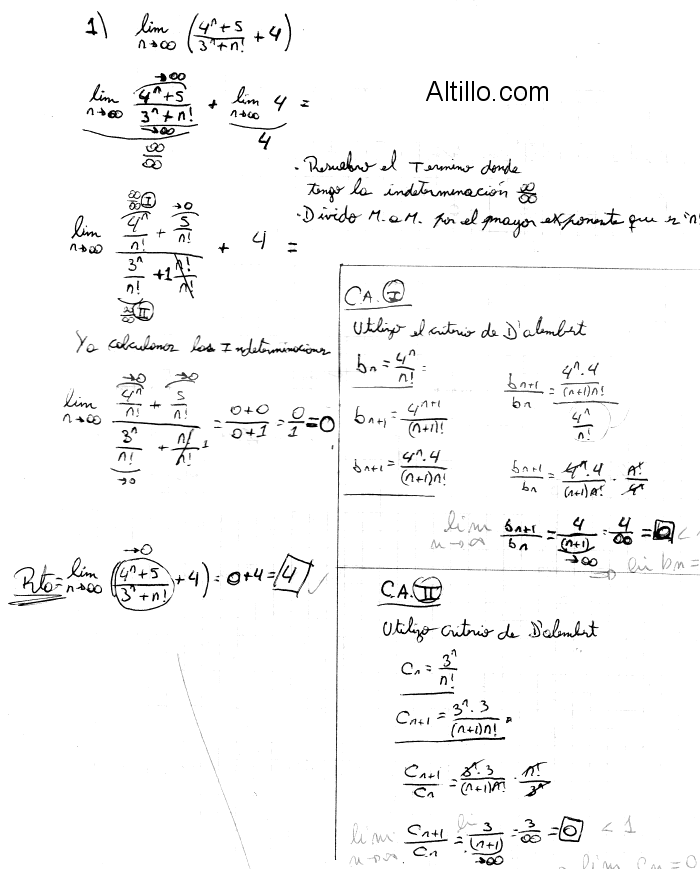 1) lim n→∞ (4ⁿ+5 / 3ⁿ+n! + 4)
Altillo.com
lim n→∞ 4ⁿ+5 →∞ / 3ⁿ+n! →∞ + lim n→∞ 4 =
∞/∞ 4
· Resuelvo el Termino donde
tengo la indeterminación ∞/∞
· Divido M. a M. por el mayor exponente que es "n!
∞/∞ (I) →0
lim n→∞ (4ⁿ/n! + 5/n!) / (3ⁿ/n! + 1 n!/n!) + 4 =
∞/∞ (II)
Ya calculamos las Indeterminaciones
→0 →0
lim n→∞ (4ⁿ/n! + 5/n!) / (3ⁿ/n! + n!/n! 1) = 0+0 / 0+1 = 0/1 = 0
→0
→0
Rta = lim n→∞ (4ⁿ+5 / 3ⁿ+n! + 4) = 0+4 = 4 ✓
C.A. (I)
Utilizo el criterio de D'alembert
bn = 4ⁿ/n! =
bn+1 = 4ⁿ⁺¹/(n+1)!
bn+1 = 4ⁿ.4/(n+1)n!
bn+1/bn = (4ⁿ.4/(n+1)n!) / (4ⁿ/n!)
bn+1/bn = 4ⁿ.4/(n+1)n! . n!/4ⁿ
lim n→∞ bn+1/bn = 4/(n+1) →∞ = 4/∞ = 0 <
→ lim bn =
C.A. (II)
Utilizo criterio de D'alembert
Cn = 3ⁿ/n!
Cn+1 = 3ⁿ.3/(n+1)n! .
Cn+1/Cn = 3ⁿ.3/(n+1)n! . n!/3ⁿ
lim n→∞ Cn+1/Cn = li 3/(n+1) →∞ = 3/∞ = 0 < 1
lim Cn = 0